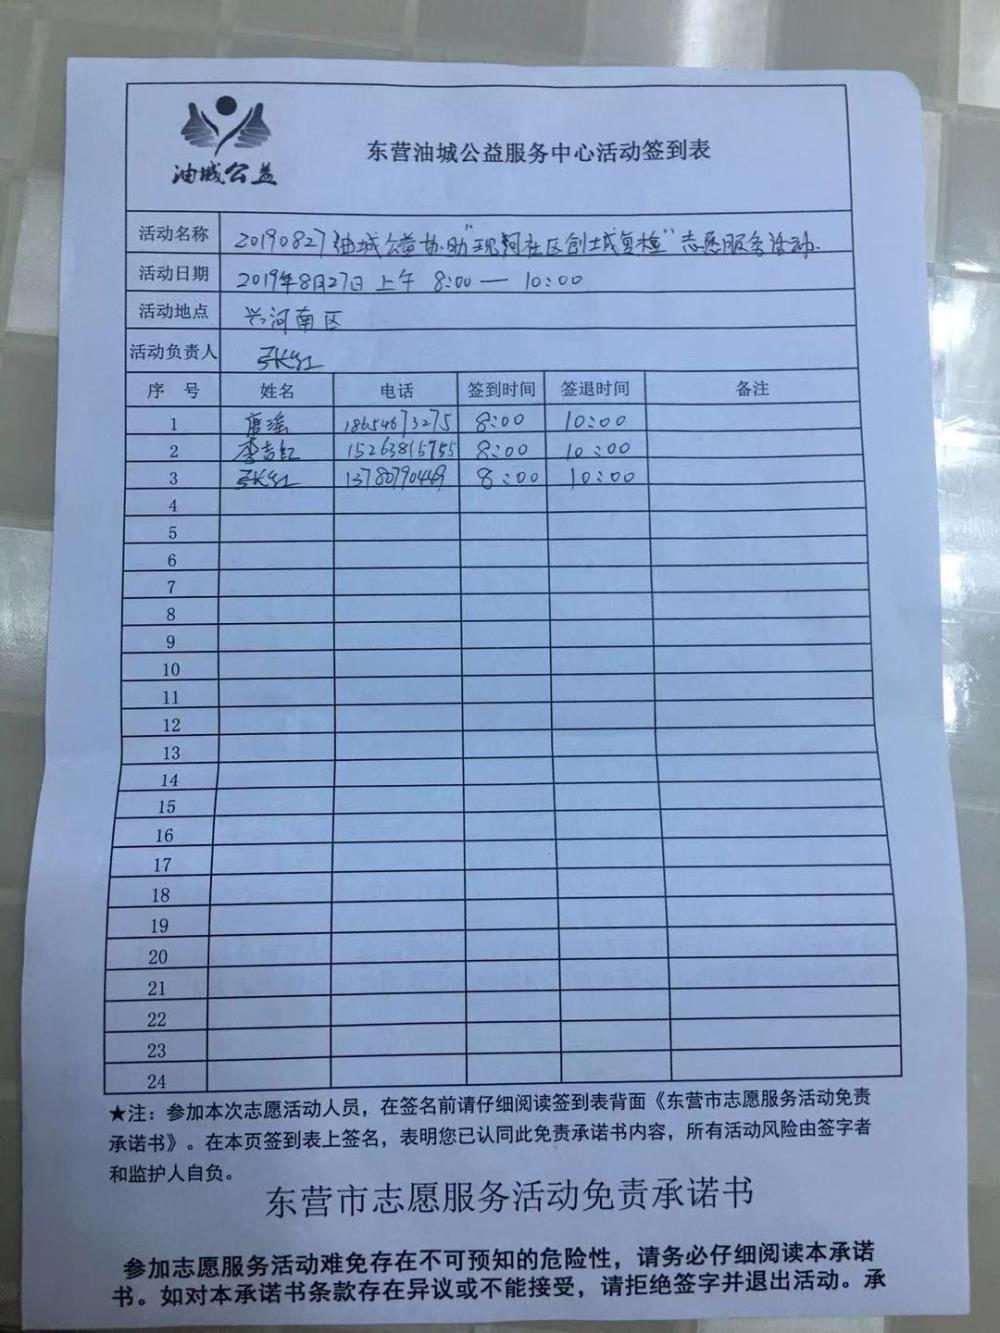 油城公益
东营油城公益服务中心活动签到表
活动名称 20190827油城公益协助"现河社区创城复检"志愿服务活动.
活动日期 2019年8月27日 上午 8:00 — 10:00
活动地点 兴河南区
活动负责人 张红
序 号 姓名 电话 签到时间 签退时间 备注
1 唐瑶 18654673275 8:00 10:00
2 李吉红 15263815755 8:00 10:00
3 张红 13780790449 8:00 10:00
4
5
6
7
8
9
10
11
12
13
14
15
16
17
18
19
20
21
22
23
24
★注：参加本次志愿活动人员，在签名前请仔细阅读签到表背面《东营市志愿服务活动免责
承诺书》。在本页签到表上签名，表明您已认同此免责承诺书内容，所有活动风险由签字者
和监护人自负。
东营市志愿服务活动免责承诺书
参加志愿服务活动难免存在不可预知的危险性，请务必仔细阅读本承诺
书。如对本承诺书条款存在异议或不能接受，请拒绝签字并退出活动。承